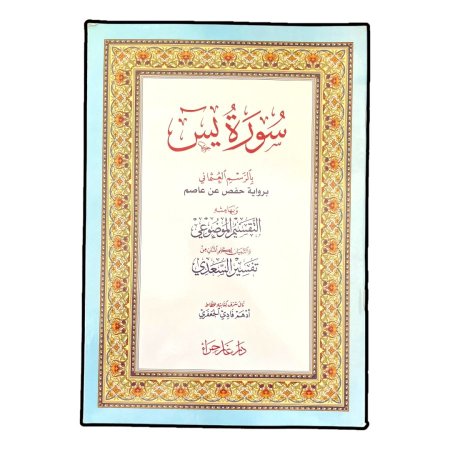 سُورَةُ يسٓ
بِالرَّسْمِ الْعُثْمَانِي
برواية حفص عن عاصم
وبهامشه
التفسير الموضوعي
تفسير السعدي
أدهم فادي الجعفري
دار غار حراء